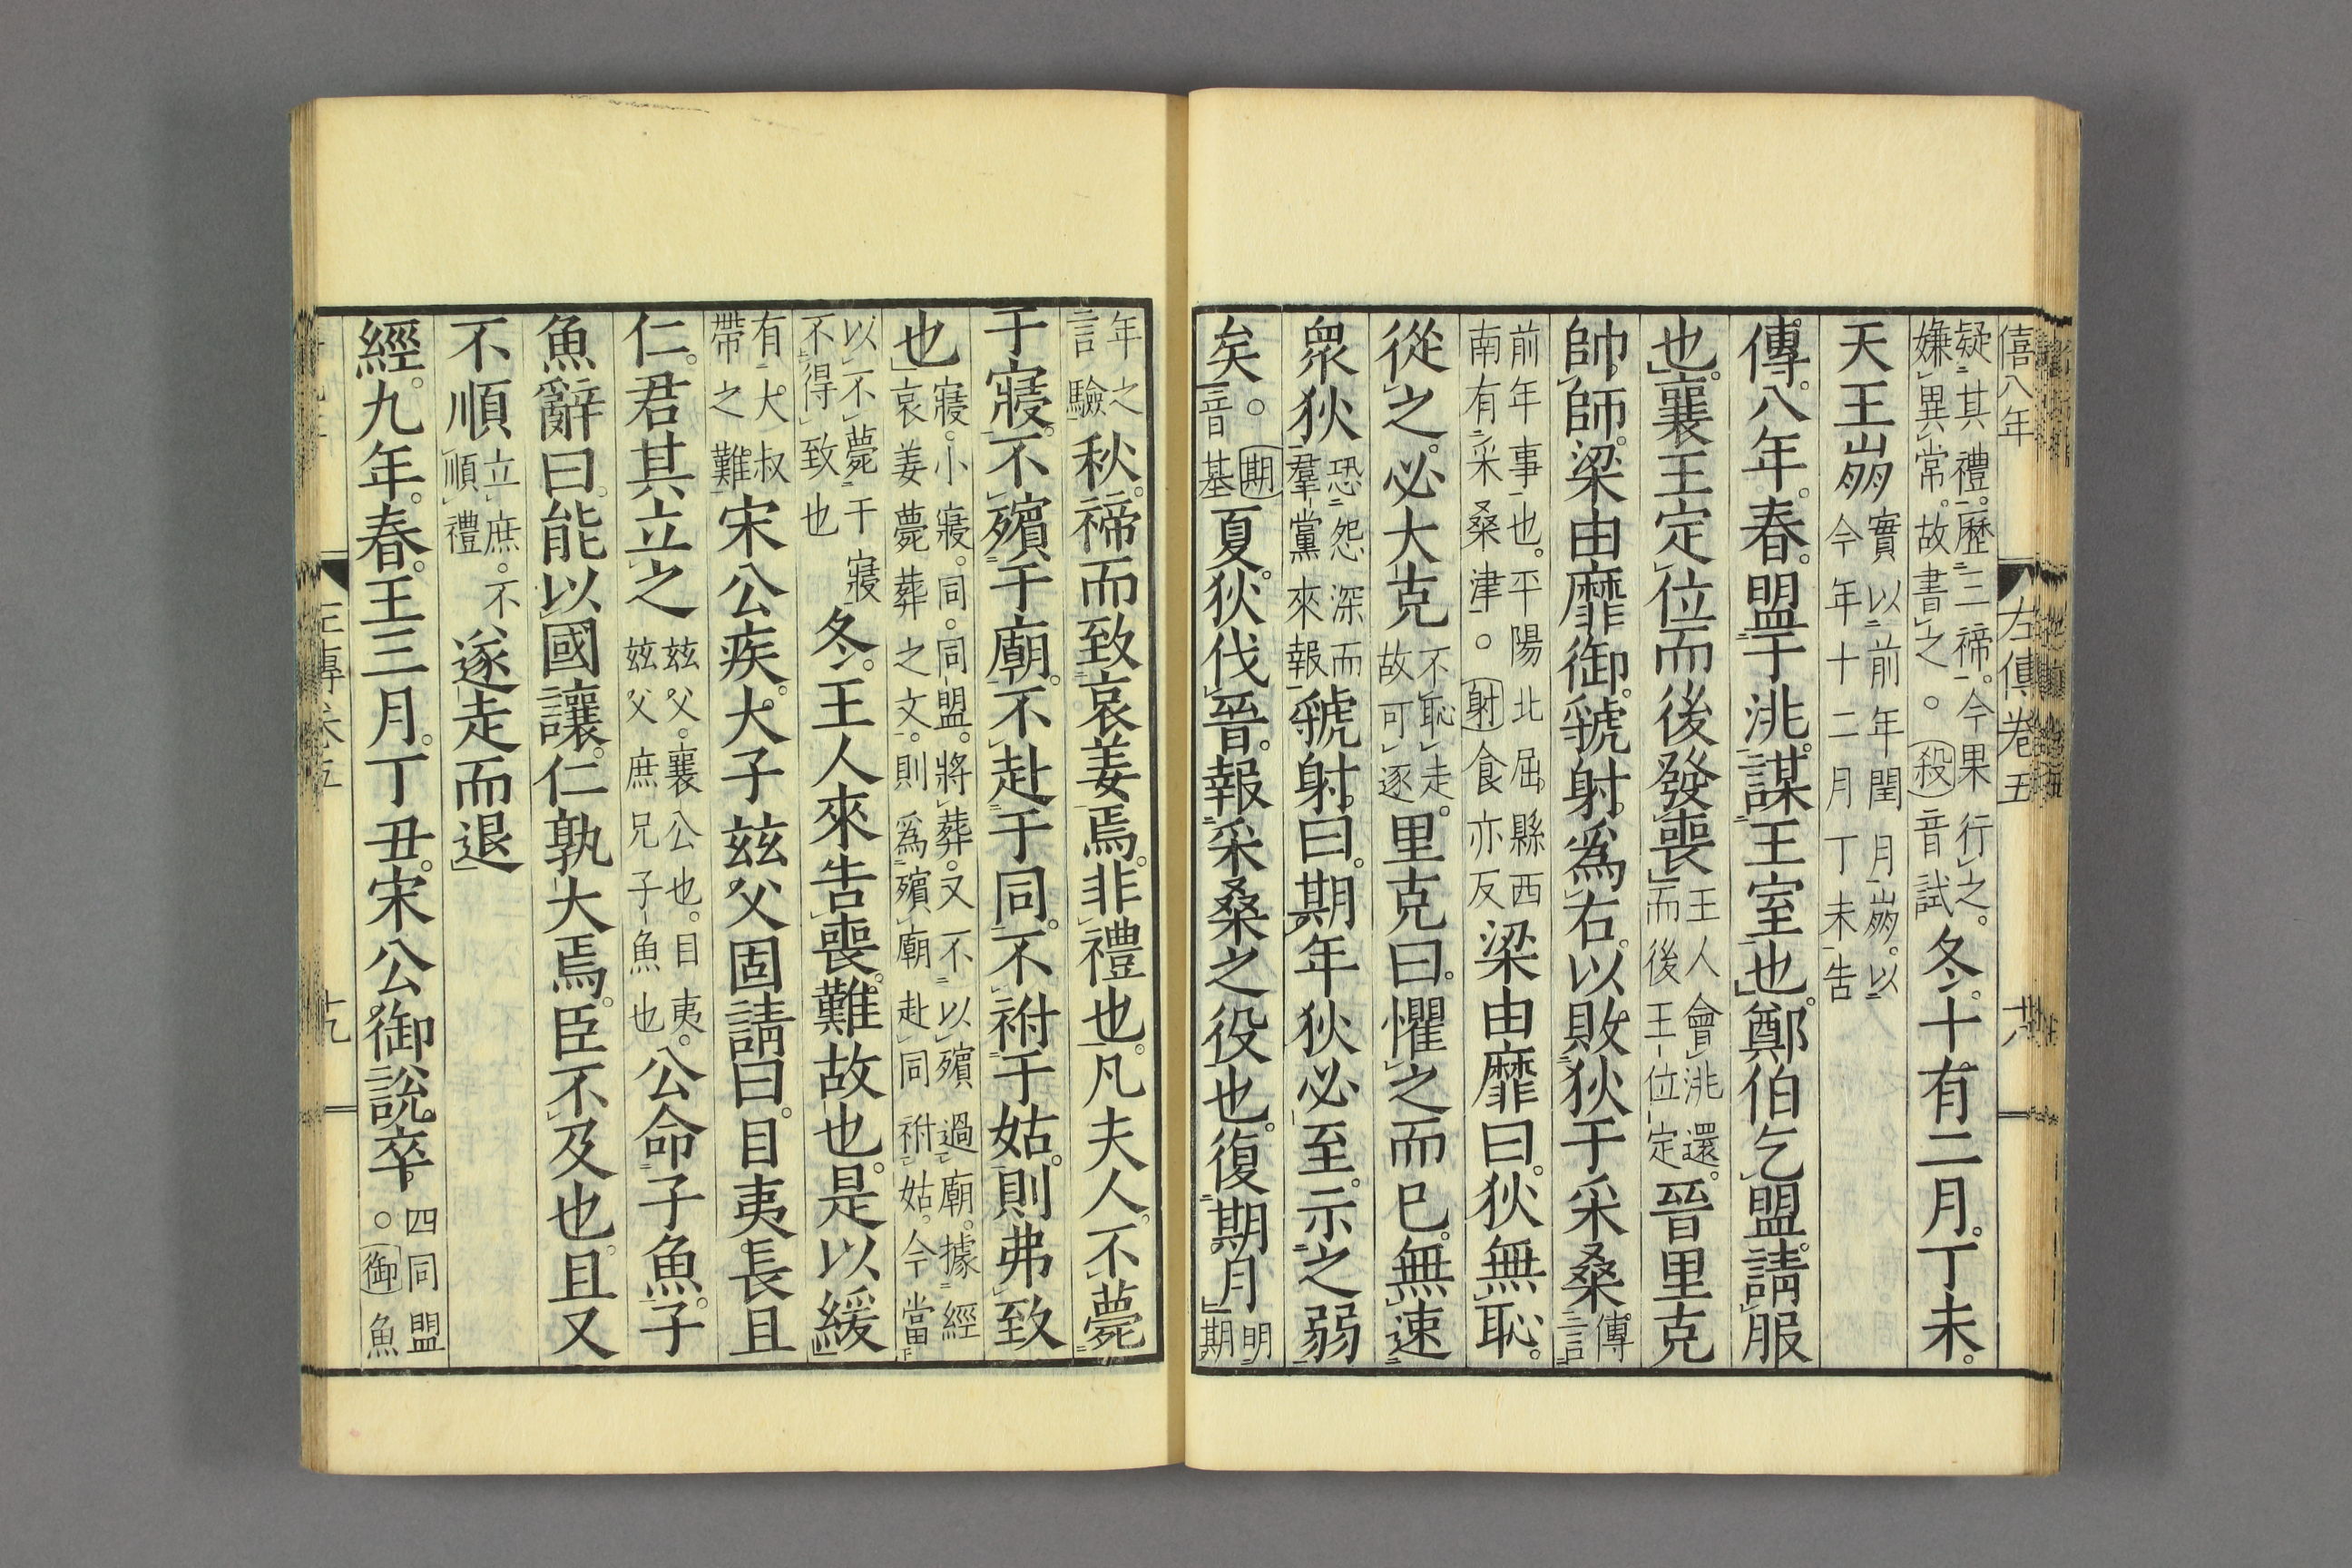 僖八年 左傳卷五 十八
疑其禮。歷三禘。今果行之。
嫌異常。故書之。○殺音試
冬。十有二月。丁未。
天王崩
實以前年閏月崩。以
今年十二月丁未告
傳。八年。春。盟于洮。謀王室也。鄭伯乞盟。請服
也。襄王定位而後發喪
王人會洮還。
而後王位定
晉里克
帥師。梁由靡御。虢射爲右。以敗狄于采桑
傳
言
前年事也。平陽北屈縣西
南有采桑津。○射食亦反
梁由靡曰。狄無恥。
從之。必大克
不恥走。
故可逐
里克曰。懼之而已。無速
衆狄
恐怨深而
羣黨來報
虢射曰。期年狄必至。示之弱
矣。
○期
音基
夏。狄伐晉。報采桑之役也。復期月
明
期
年之
言驗
秋。禘而致哀姜焉。非禮也。凡夫人。不薨
于寢。不殯于廟。不赴于同。不祔于姑。則弗致
也
寢。小寢。同。同盟。將葬。又不以殯過廟。據經
哀姜薨葬之文。則爲殯廟赴同祔姑。今當
以不薨于寢
不得致也
冬。王人來告喪。難故也。是以緩
有大叔
帶之難
宋公疾。大子茲父固請曰。目夷長且
仁。君其立之
茲父。襄公也。目夷。
茲父庶兄子魚也
公命子魚。子
魚辭曰。能以國讓。仁孰大焉。臣不及也。且又
不順
立庶。不
順禮
遂走而退
經。九年。春。王三月。丁丑。宋公御說卒。
四同盟
○御魚